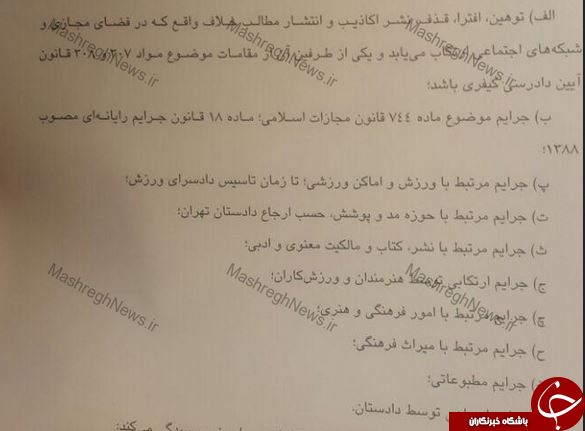 الف) توهین، افترا، قذف، نشر اکاذیب و انتشار مطالب خلاف واقع که در فضای مجازی و
شبکه‌های اجتماعی ارتکاب می‌یابد و یکی از طرفین آن از مقامات موضوع مواد ۳۰۷ و ۳۰۸ قانون
آیین دادرسی کیفری باشد؛
ب) جرایم موضوع ماده ۷۴۴ قانون مجازات اسلامی؛ ماده ۱۸ قانون جرایم رایانه‌ای مصوب
۱۳۸۸؛
پ) جرایم مرتبط با ورزش و اماکن ورزشی؛ تا زمان تاسیس دادسرای ورزش؛
ت) جرایم مرتبط با حوزه مد و پوشش، حسب ارجاع دادستان تهران؛
ث) جرایم مرتبط با نشر، کتاب و مالکیت معنوی و ادبی؛
ج) جرایم ارتکابی توسط هنرمندان و ورزش‌کاران؛
چ) جرایم مرتبط با امور فرهنگی و هنری؛
ح) جرایم مرتبط با میراث فرهنگی؛
جرایم مطبوعاتی؛
توسط دادستان.
می‌کند:
MashreghNews.ir
MashreghNews.ir
MashreghNews.ir
MashreghNews.ir
MashreghNews.ir
MashreghNews.ir
باشگاه خبرنگاران